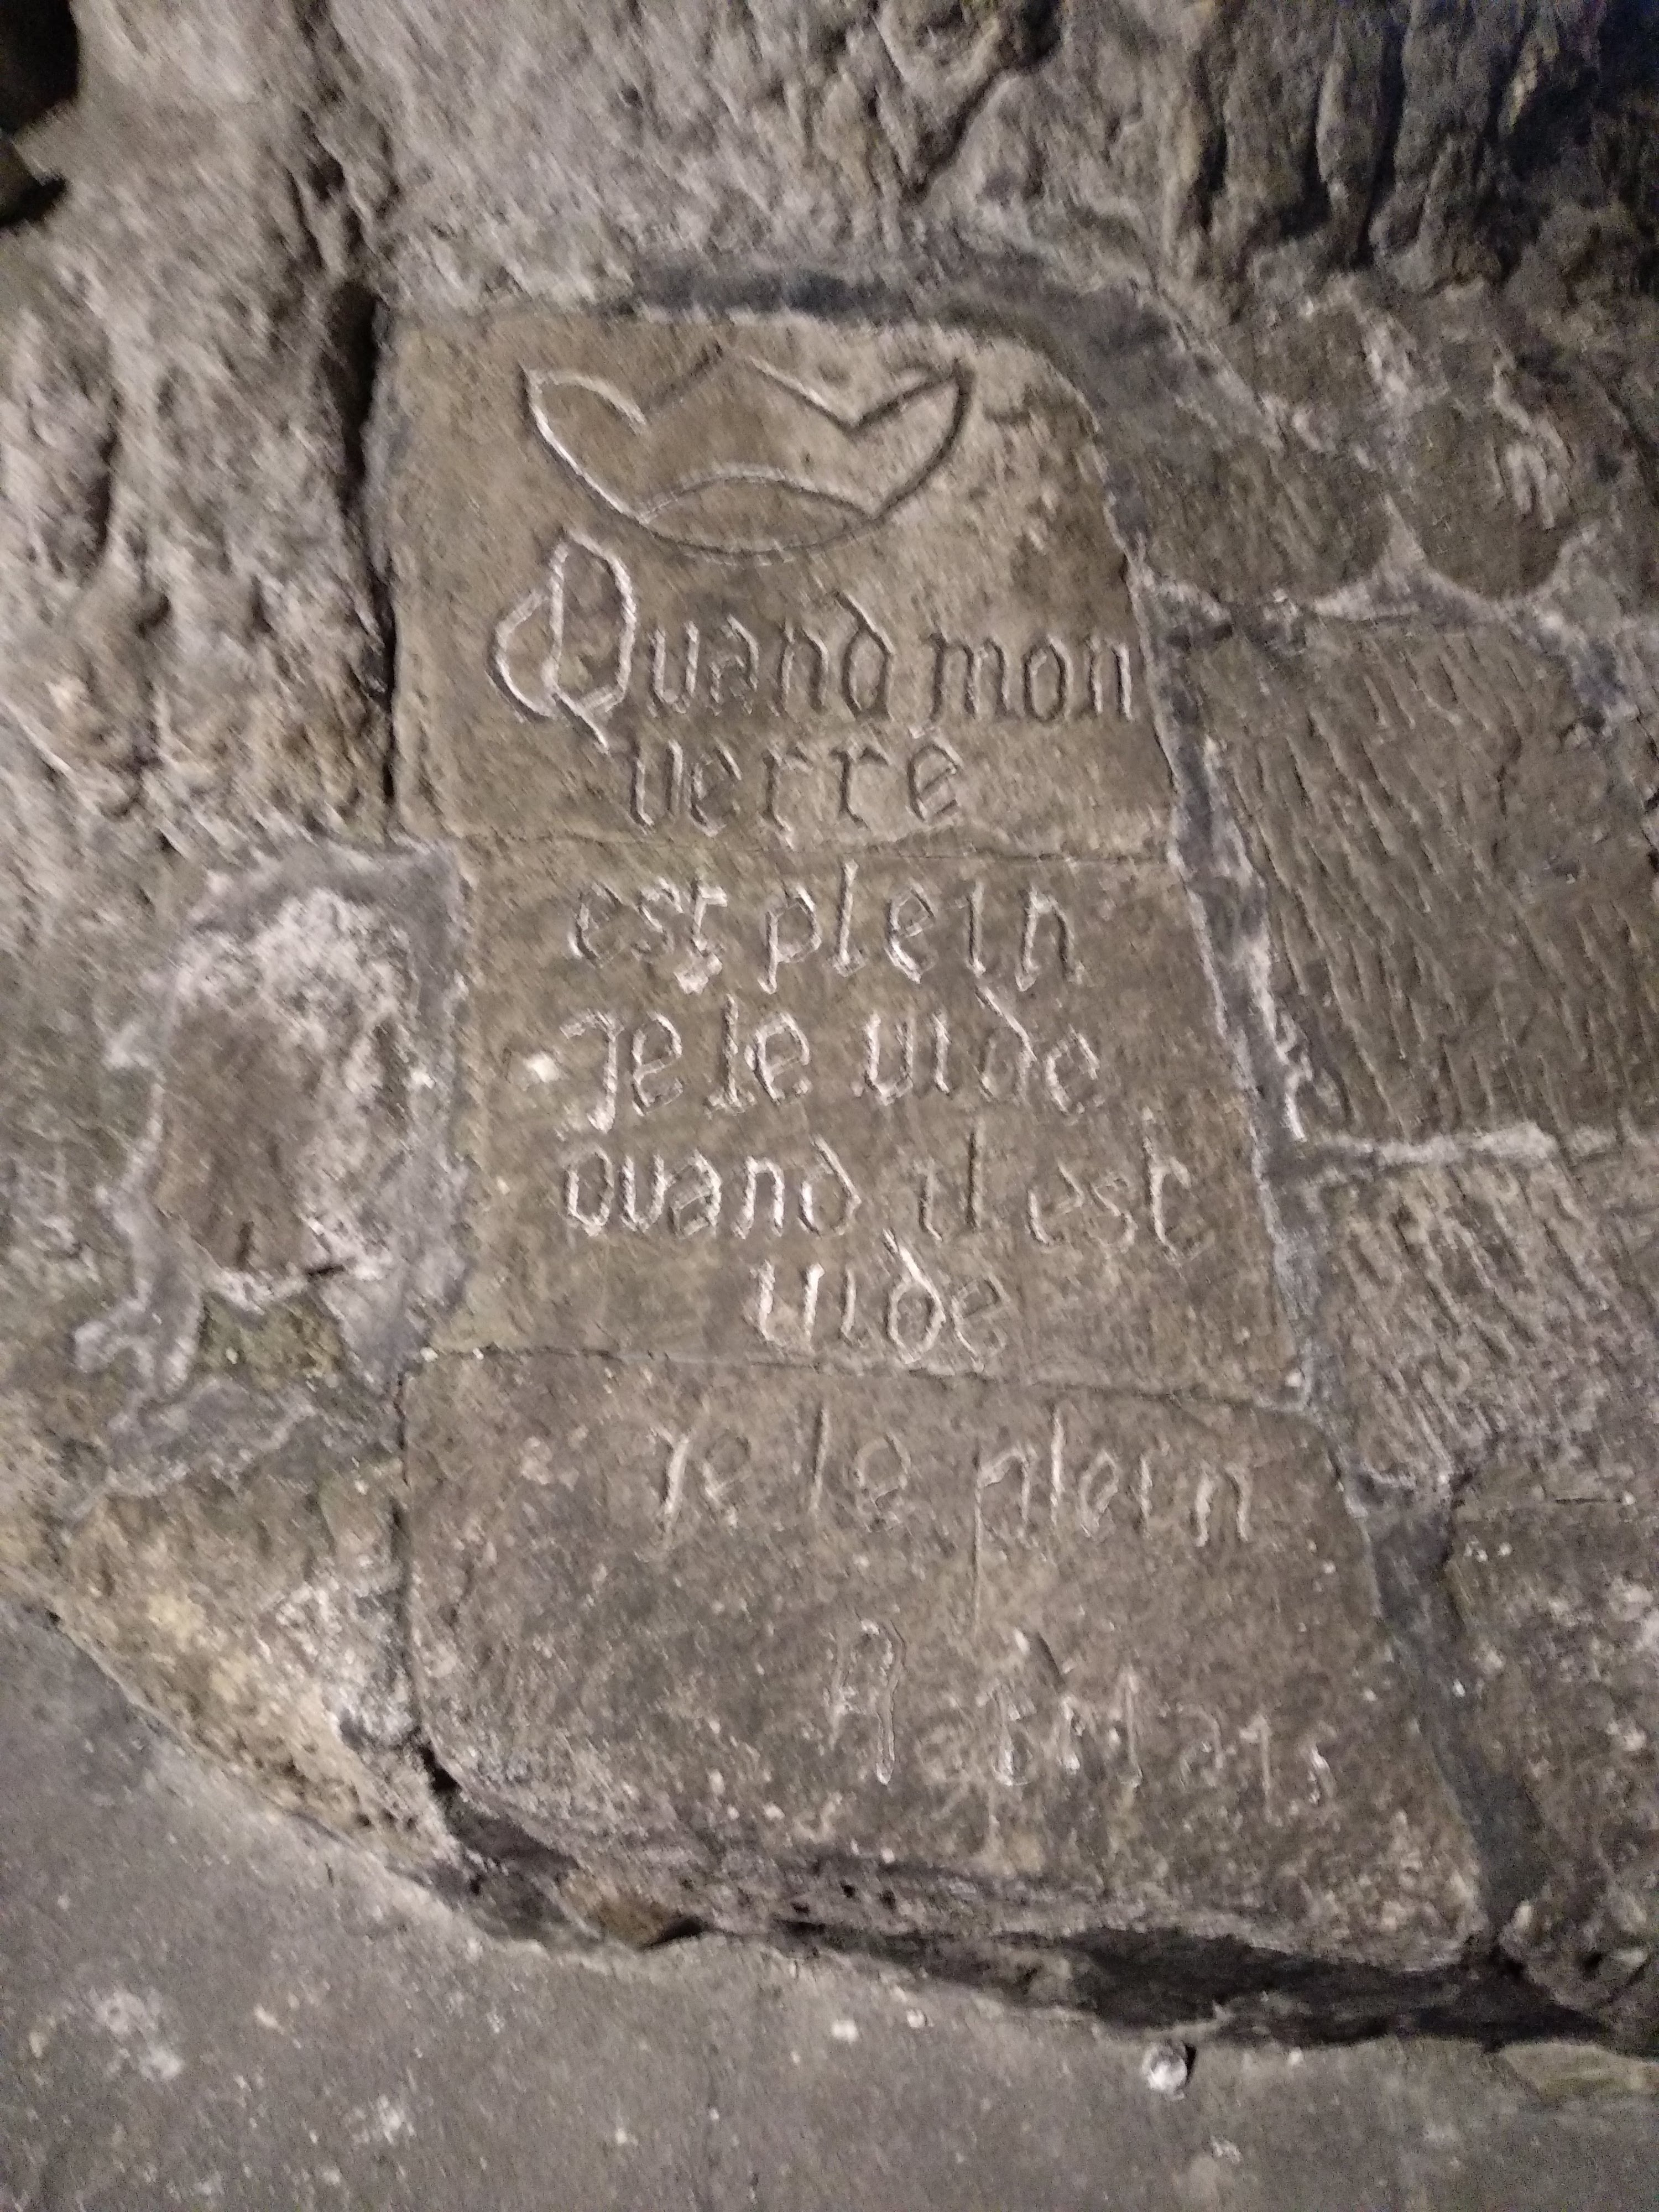 Quand mon
verre
est plein
Je le vide
quand il est
vide
Je le plein
Rabelais